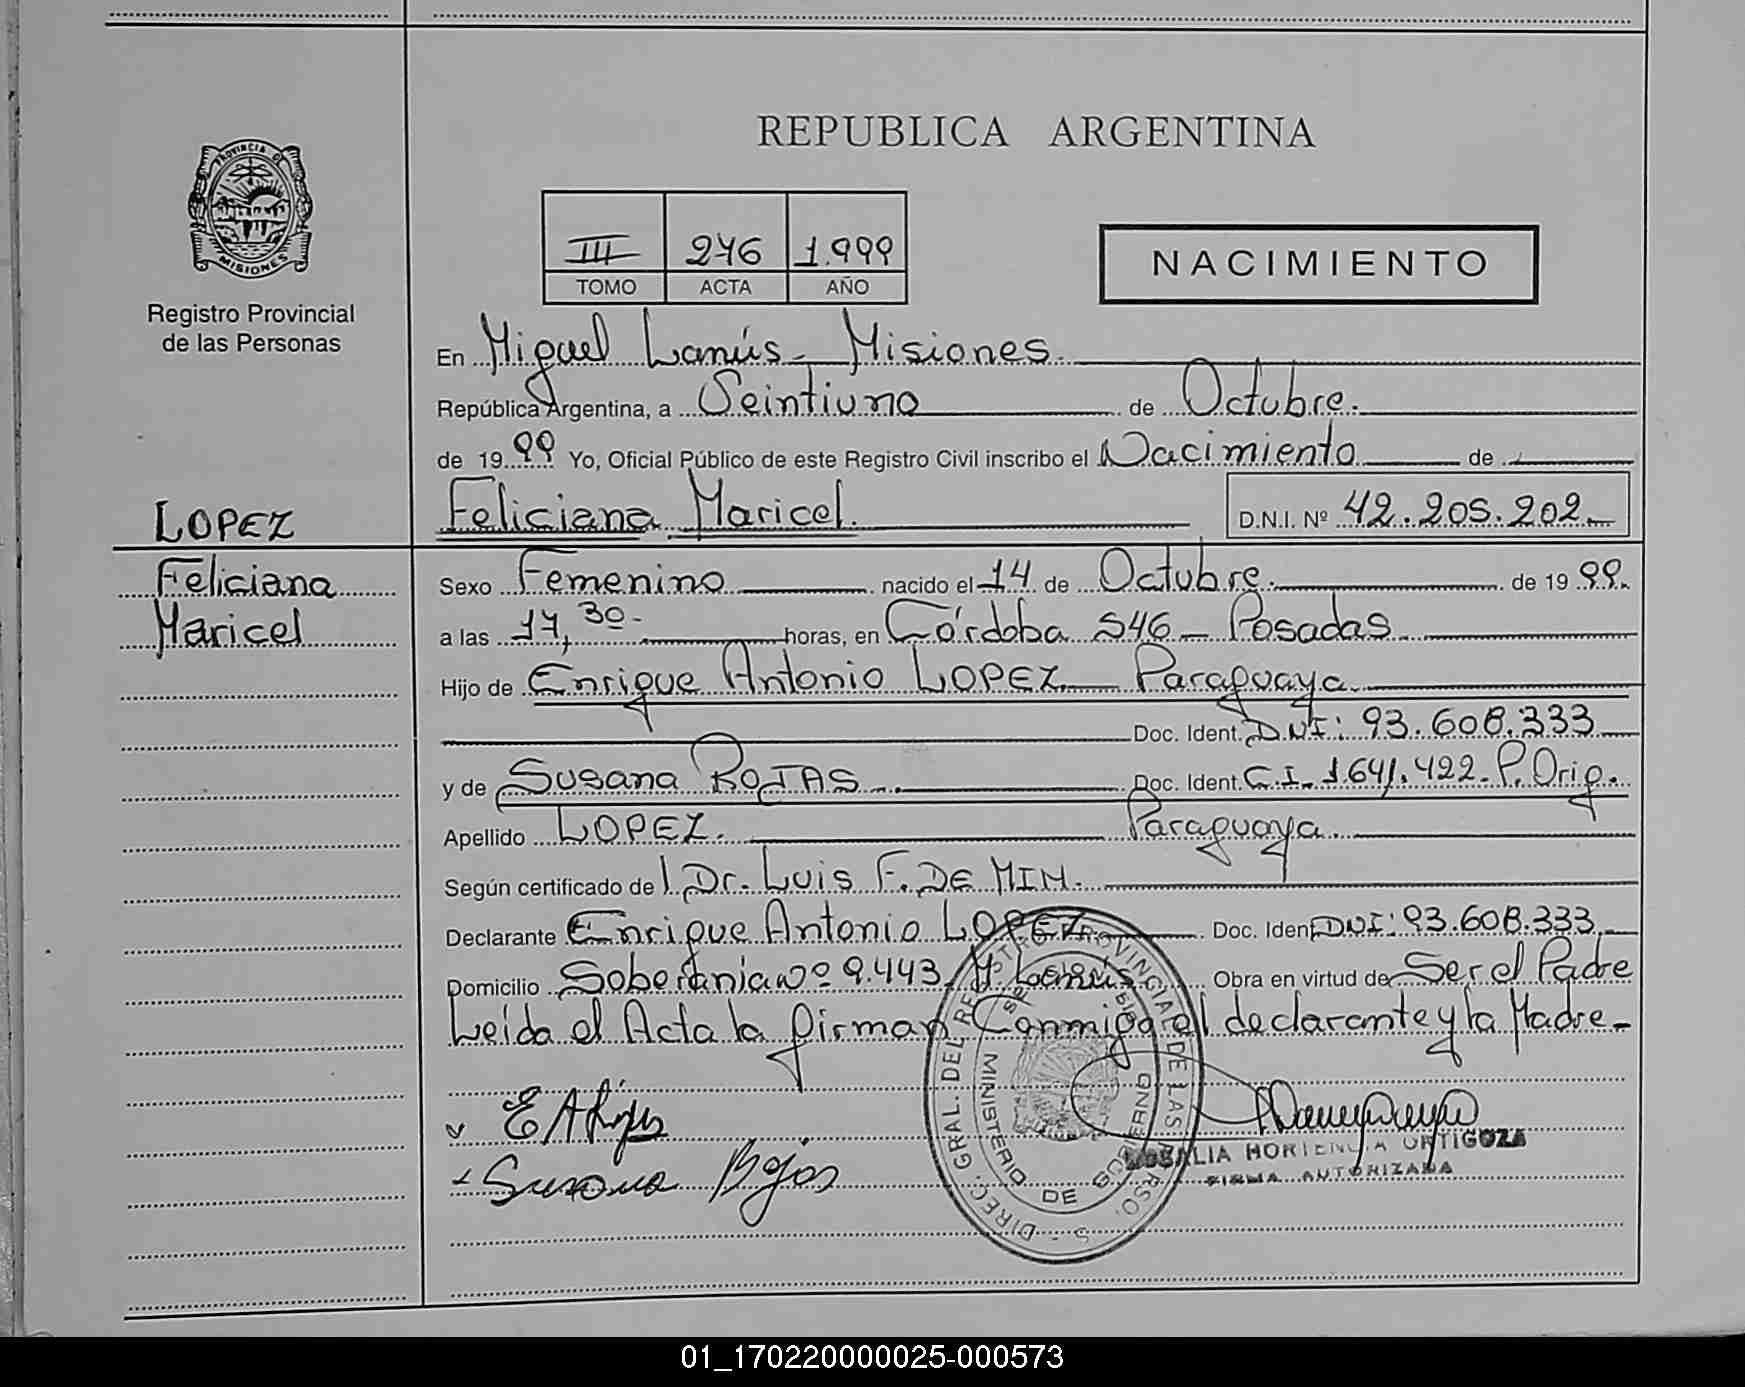 REPUBLICA ARGENTINA
PROVINCIA DE
MISIONES
Registro Provincial
de las Personas
III 276 1.999
TOMO ACTA AÑO
NACIMIENTO
En Miguel Lanús - Misiones.
República Argentina, a Veintiuno de Octubre.
de 1999 Yo, Oficial Público de este Registro Civil inscribo el Nacimiento de
Feliciana Maricel. D.N.I. Nº 42.205.202.
LOPEZ
Feliciana
Maricel
Sexo Femenino nacido el 14 de Octubre. de 1999.
a las 17,30- horas, en Córdoba 546 - Posadas
Hijo de Enrique Antonio LOPEZ - Paraguaya.
Doc. Ident. DNI: 93.608.333
y de Susana ROJAS. Doc. Ident. C.I. 1.641.422. P. Orig.
Apellido LOPEZ. Paraguaya.
Según certificado de l Dr. Luis F. DE MIM.
Declarante Enrique Antonio LOPEZ. Doc. Ident. DNI: 93.608.333
Domicilio Soberania Nº 9.443. M. Lanús. Obra en virtud de Ser el Padre
Leída el Acta la firman Conmigo el declarante y la Madre.-
E A López
Susana Rojas
DIREC. GRAL. DEL REGISTRO PROVINCIAL DE LAS PERSO.
MINISTERIO DE GOBIERNO
ROSALIA HORTENCIA ORTIGOZA
FIRMA AUTORIZADA
01_170220000025-000573